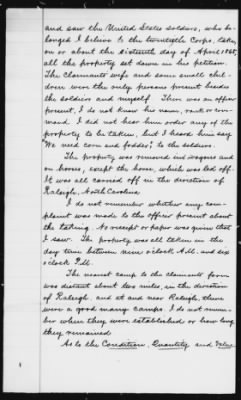 and saw the United States soldiers, who be-
longed I believe to the twentieth Corps, take,
on or about the sixteenth day of April 1865,
all the property set down in his petition.
The claimants wife and some small chil-
dren were the only persons present besides
the soldiers and myself. There was an officer
present, I do not know his name, rank or com-
mand. I did not hear him order any of the
property to be taken, but I heard him say
"We need corn and fodder," to the soldiers.
The property was removed in wagons and
on horses, except the horse, which was led off.
It was all carried off in the direction of
Raleigh, North Carolina
I do not remember whether any com-
plaint was made to the officer present about
the taking. No receipt or paper was given that
I saw. The property was all taken in the
day time between nine o'clock A.M. and six
o'clock P.M.
The nearest camp to the claimants farm
was distant about two miles, in the direction
of Raleigh, and at and near Raleigh, there
were a good many camps. I do not remem-
ber when they were established or how long
they remained
As to the Condition, Quantity and Value